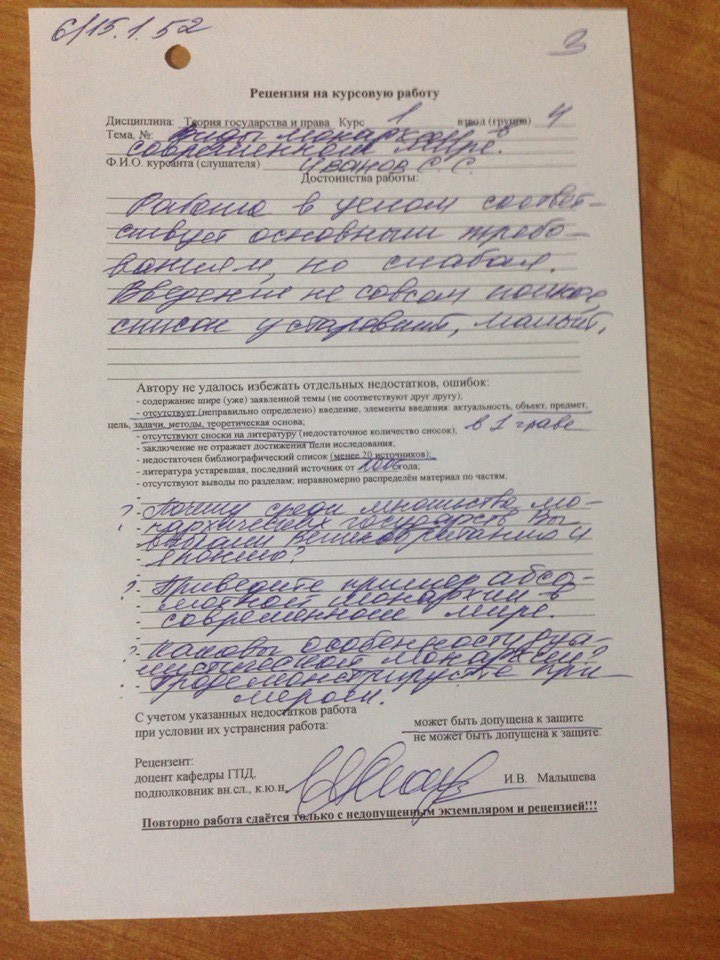 6/15.1.52
3
Рецензия на курсовую работу
Дисциплина: Теория государства и права Курс 1 взвод (группа) 4
Тема, №: Виды монархий в
современном мире.
Ф.И.О. курсанта (слушателя) Иванов С. С.
Достоинства работы:
Работа в целом соответ-
ствует основным требо-
ваниям, но слабая.
Введение не совсем полное,
список устаревший, малый.
Автору не удалось избежать отдельных недостатков, ошибок:
- содержание шире (уже) заявленной темы (не соответствуют друг другу);
- отсутствует (неправильно определено) введение, элементы введения: актуальность, объект, предмет,
цель, задачи, методы, теоретическая основа;
- отсутствуют сноски на литературу (недостаточное количество сносок); в 1 главе
- заключение не отражает достижения цели исследования;
- недостаточен библиографический список (менее 20 источников);
- литература устаревшая, последний источник от года;
- отсутствуют выводы по разделам; неравномерно распределён материал по частям;
? - Почему среди множества мо-
- нархических государств Вы
- выбрали Великобританию и
- Японию?
? - Приведите пример абсо-
- лютной монархии в
- современном мире.
? - Каковы особенности дуа-
- листической монархии?
- Продемонстрируйте при-
мером.
С учетом указанных недостатков работа
при условии их устранения работа:
может быть допущена к защите
не может быть допущена к защите.
Рецензент:
доцент кафедры ГПД,
подполковник вн.сл., к.ю.н. И.В. Малышева
Повторно работа сдаётся только с недопущенным экземпляром и рецензией!!!